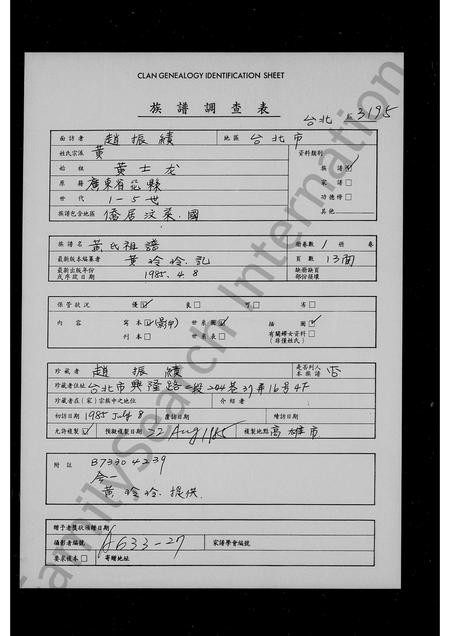 CLAN GENEALOGY IDENTIFICATION SHEET
族譜調查表
台北 3195
面訪者 趙振績 地區 台北市
姓氏宗派 黃 資料類別
始祖 黃士龙 族譜☑
原籍 廣東省 縣 家譜□
世代 1-5世 功德榜□
族譜包含地區 僑居汶萊國 其他
族譜名 黃氏祖譜 冊卷數 1冊 卷
最新版本編纂者 黃玲玲記 頁數 13面
最新出版年份或序跋日期 1985.4.8 缺冊缺頁部份損壞
保管狀況 優☑ 良□ 可□ 劣□
內容 寫本☑(影印) 世系圖☑ 插圖☑
刊本□ 世系表□ 有關婦女資料□(非僅姓氏)
珍藏者 趙振績 是否列入本族譜 否
珍藏者住址 台北市興隆路一段204巷37弄16号4F
珍藏者在(家)宗族中之地位 介紹者
初訪日 1985 July 8 復訪日 續訪日
允許複製☑ 預擬複製日期 22 Aug 1985 複製地點 高雄市
附註 B73304239
令一
黃玲玲.提供.
贈予者獎狀領贈日期
攝影者編號 A633-27 家譜學會編號
要家複本□ 寄贈地址
FamilySearch International